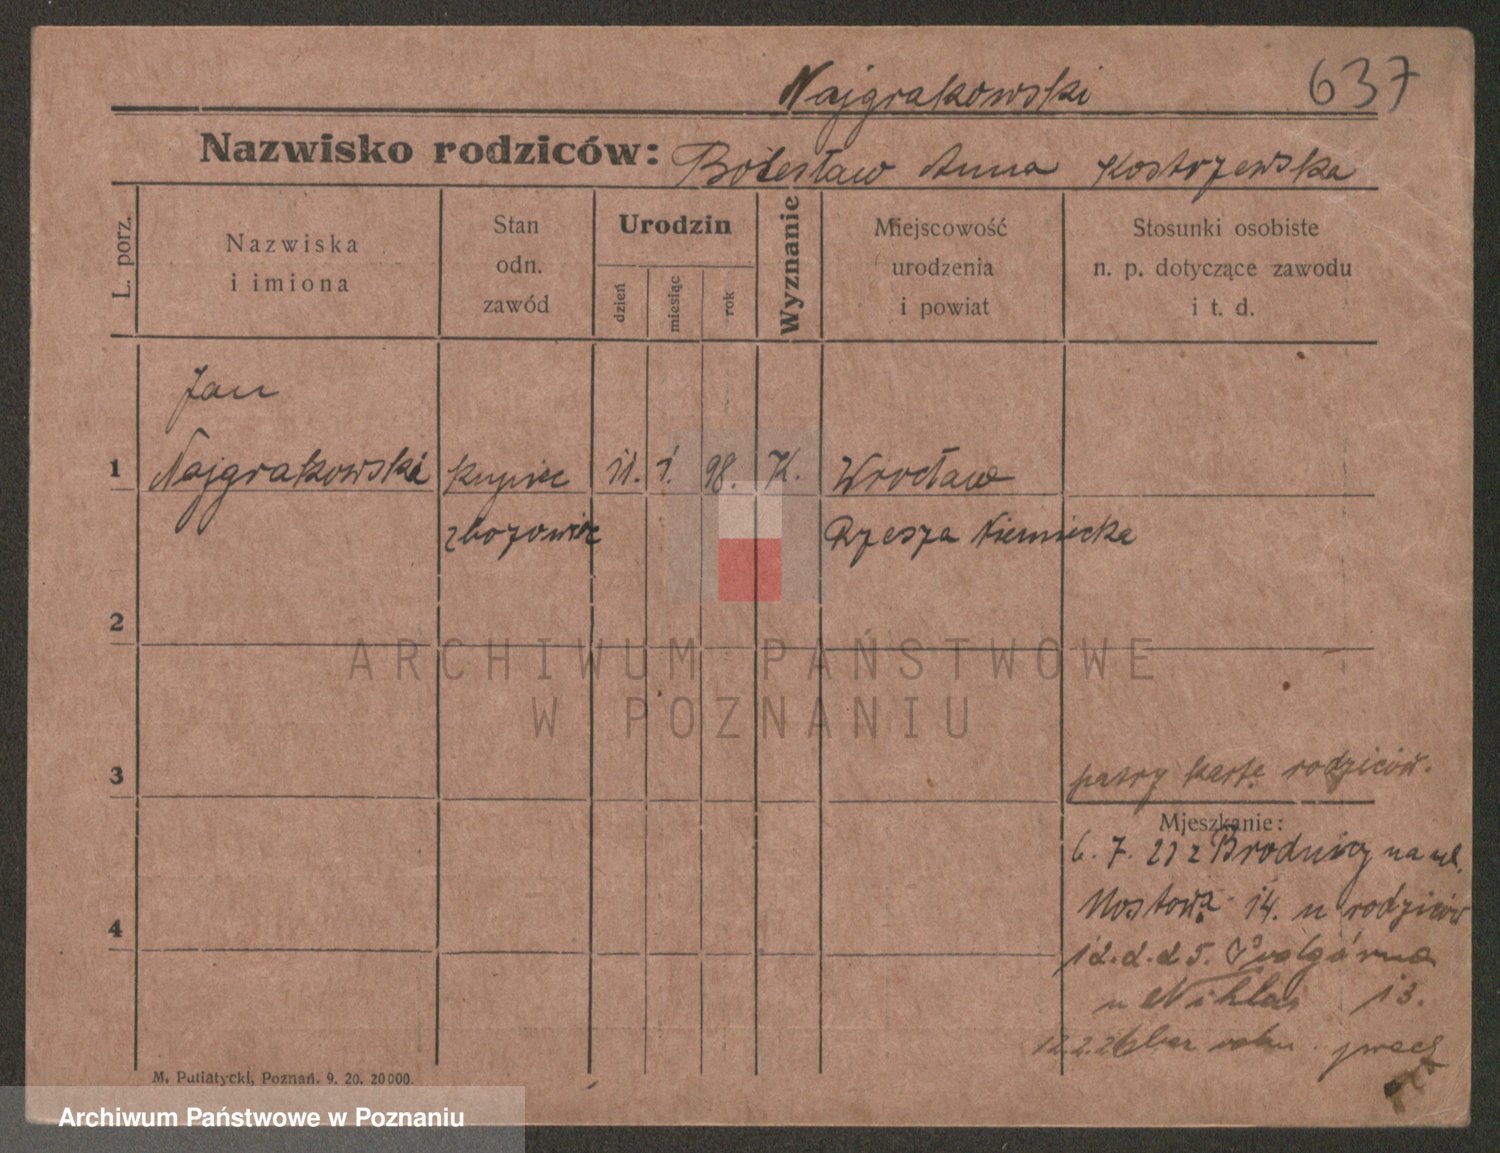 637
Najgrakowski
Nazwisko rodziców: Bolesław Anna Kostrzewska
L. porz.
Nazwiska
i imiona
Stan
odn.
zawód
Urodzin
dzień
miesiąc
rok
Wyznanie
Miejscowość
urodzenia
i powiat
Stosunki osobiste
n. p. dotyczące zawodu
i t. d.
Jan
1 Najgrakowski kupiec 11. 1. 98. K. Wrocław
zbożowiec Rzesza Niemiecka
2
ARCHIWUM PAŃSTWOWE
W POZNANIU
3
patrz kartę rodziców.
Mieszkanie:
6. 7. 21 z Brodnicy na ul.
Mostową 14. u rodziców
4
12.2.25. Podgórna
u Niklas 13.
12.2.26
M. Putiatycki, Poznań. 9. 20. 20000.
Archiwum Państwowe w Poznaniu